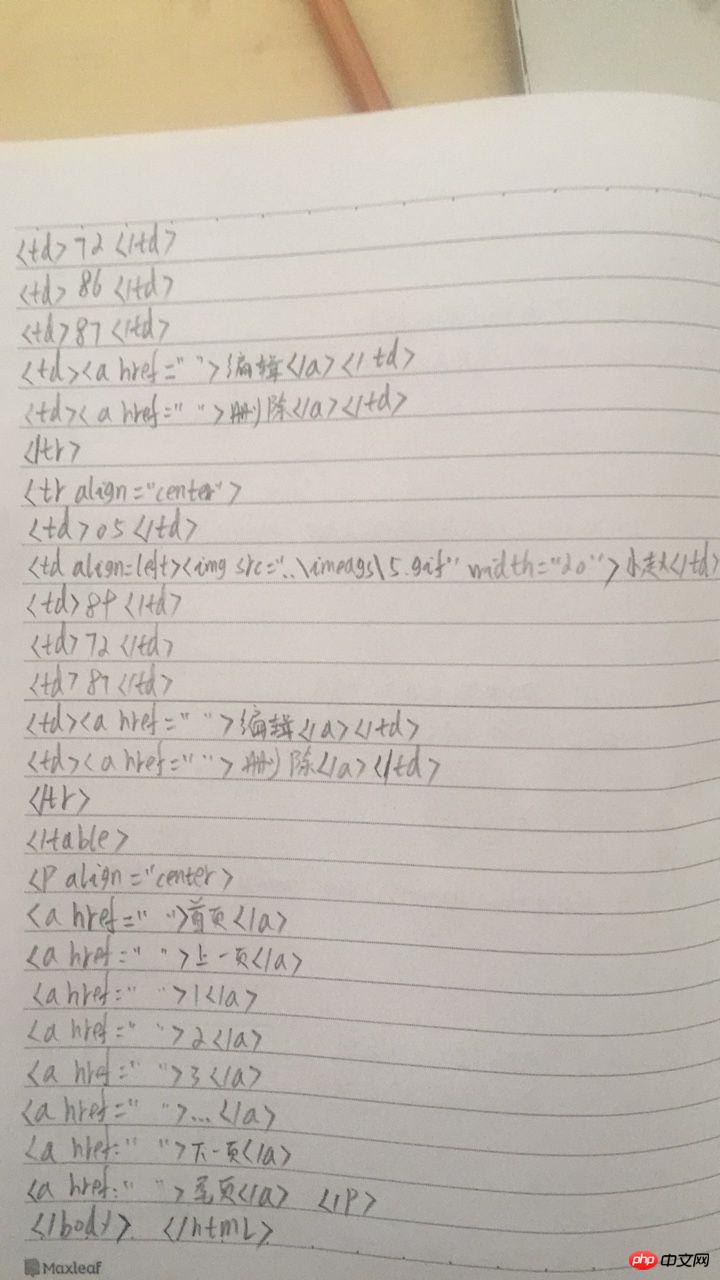 <td>72</td>
<td>86</td>
<td>87</td>
<td><a href=" ">编辑</a></td>
<td><a href=" ">删除</a></td>
</tr>
<tr align="center">
<td>05</td>
<td align=left><img src="..\imeags\5.gif" width="20">小</td>
<td>84</td>
<td>72</td>
<td>87</td>
<td><a href=" ">编辑</a></td>
<td><a href=" ">删除</a></td>
</tr>
</table>
<P align="center>
<a href=" ">首页</a>
<a href=" ">上一页</a>
<a href=" ">1</a>
<a href=" ">2</a>
<a href=" ">3</a>
<a href=" ">...</a>
<a href=" ">下一页</a>
<a href=" ">尾页</a> </P>
</body> </html>
Maxleaf
php中文网